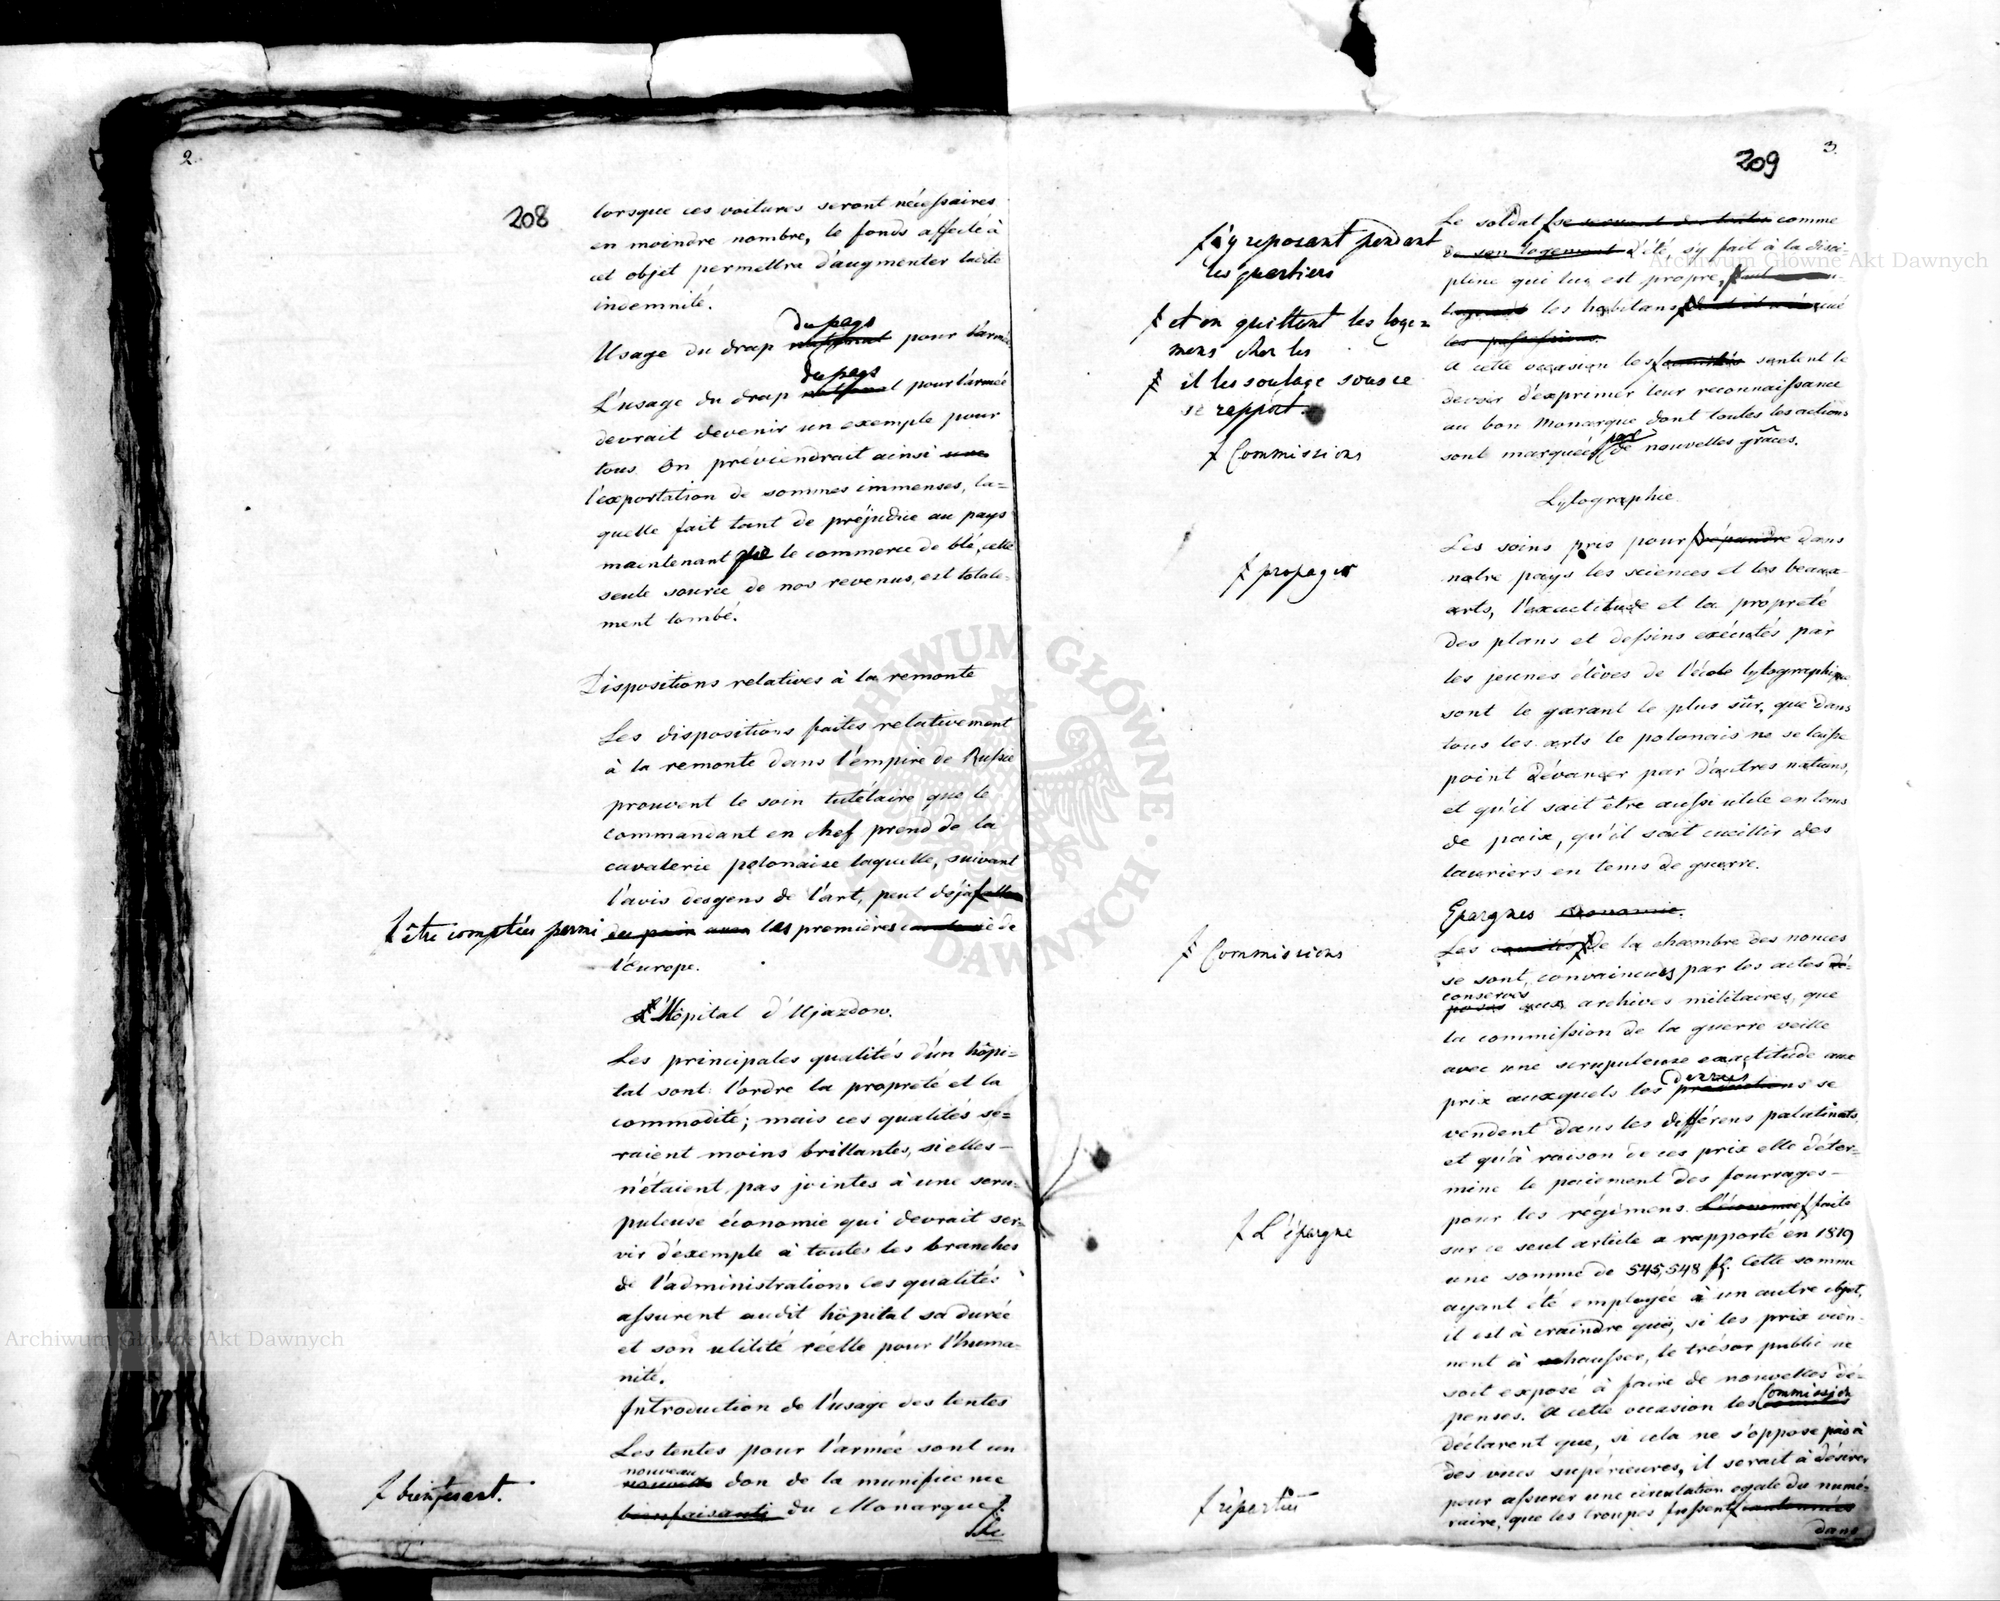 2.
208
lorsque ces voitures seront nécessaires
en moindre nombre, le fonds affecté à
cet objet permettra d'augmenter ladite
indemnité.
du pays
Usage du drap national pour l'armée
du pays
L'usage du drap national pour l'armée
devrait devenir un exemple pour
tous. On previendrait ainsi une
l'exportation de sommes immenses, la=
quelle fait tant de préjudice au pays
maintenant que le commerce de blé, cette
seule source de nos revenus, est totale-
ment tombé.
Dispositions relatives à la remonte
Les dispositions faites relativement
à la remonte dans l'empire de Russie
prouvent le soin tutélaire que le
commandant en chef prend de la
cavalerie polonaise laquelle, suivant
l'avis des gens de l'art, peut deja aller
être comptée parmi
du pair avec les premières de
l'Europe.
L'Hôpital d'Ujazdow.
Les principales qualités d'un hôpi=
tal sont: l'ordre la propreté et la
commodité; mais ces qualités se=
raient moins brillantes, si elles
n'étaient pas jointes à une scru=
puleuse économie qui devrait ser=
vir d'exemple à toutes les branches
de l'administration. Ces qualités
assurent audit hôpital sa durée
et son utilité réelle pour l'huma=
nité.
Introduction de l'usage des tentes
Les tentes pour l'armée sont un
nouveau
nouvelle don de la munificence
bienfaisante du Monarque
bienfesant.
Le
209
3.
Le soldat se servant des tentes comme
y reposant pendant
les quartiers
de son logement d'été, s'y fait à la disci-
pline qui lui est propre,
et en quittant les loge=
mens chez les
les habitans
il les soulage sous ce
rapport.
les possessions.
A cette occasion les comités sentent le
Commissions
devoir d'exprimer leur reconnaissance
au bon Monarque dont toutes les actions
par
sont marquées de nouvelles grâces.
Lytographie.
Les soins pris pour répandre dans
propager
notre pays les sciences et les beaux
arts, l'exactitude et la propreté
des plans et dessins exécutés par
les jeunes élèves de l'école lytographique
sont le garant le plus sûr, que dans
tous les arts le polonais ne se laisse
point dévancer par d'autres nations,
et qu'il sait être aussi utile en tems
de paix, qu'il sait cueillir des
lauriers en tems de guerre.
Epargnes économie.
Les comités de la chambre des nonces
Commissions
se sont convaincus par les actes dé-
conservés
posés aux archives militaires, que
la commission de la guerre veille
avec une scrupuleuse exactitude aux
denrées
prix auxquels les productions se
vendent dans les différens palatinats,
et qu'à raison de ces prix elle déter=
mine le paiement des fourrages
pour les régimens. L'économie faite
L'épargne
sur ce seul article a rapporté en 1819
une somme de 545,548 fl. Cette somme
ayant été employée à un autre objet,
il est à craindre que, si les prix vien-
nent à rehausser, le trésor public ne
soit exposé à faire de nouvelles dé-
Commissions
penses. A cette occasion les comités
déclarent que, si cela ne s'oppose pas à
des vues supérieures, il serait à désirer
pour assurer une circulation egale du numé-
raire, que les troupes fussent cantonnées
réparties
dans
Archiwum Główne Akt Dawnych
Archiwum Główne Akt Dawnych
ARCHIWUM GŁÓWNE AKT DAWNYCH